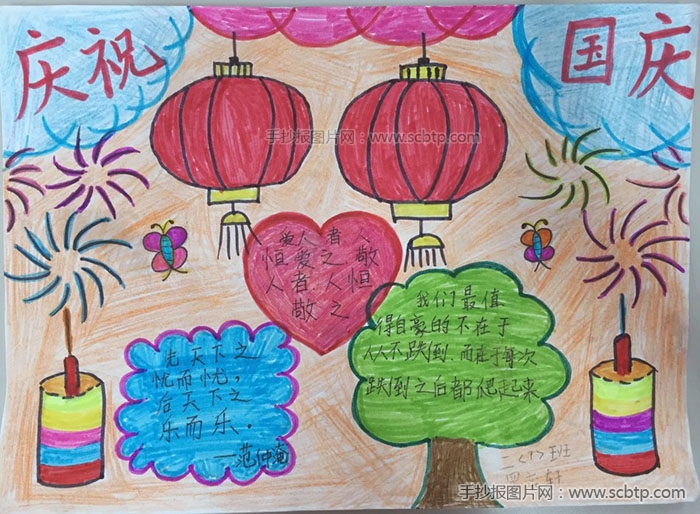 庆祝
国庆
手抄报图片网：www.scbtp.com
爱人者 人
恒爱之 敬
人者.人恒
敬之
我们最值
得自豪的不在于
从不跌倒,而在于每次
跌倒之后都爬起来
先天下之
忧而忧,
后天下之
乐而乐.
—范仲淹
二<1>班
手抄报图片网：www.scbtp.com